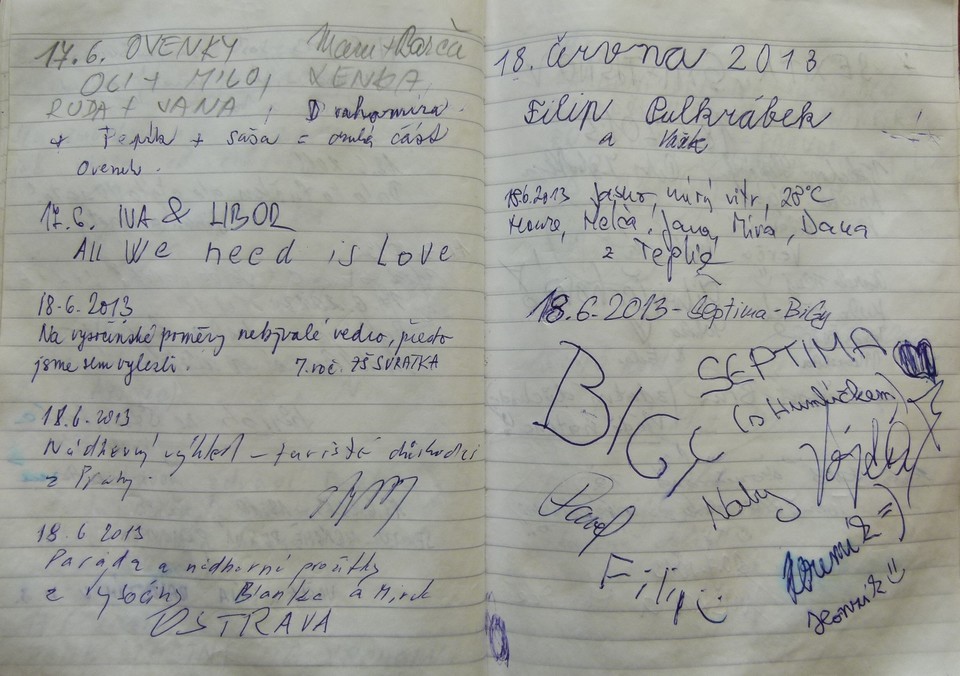 17.6. OVENKY
OLI + MILO, LENKA
RUDA + JANA, Drahomíra
+ Pepík + Saša = druhá část
Ovenek.
17.6. IVA & LIBOR
All We need is Love
18.6.2013
Na vysočinské poměry nebývalé vedro, přesto
jsme sem vylezli. 7. roč. ZŠ SVRATKA
18.6.2013
Nádherný výhled – turisté důchodci
z Prahy.
18.6 2013
Paráda a nádherné prožitky
z Vysočiny Blanka a Mirek
OSTRAVA
18. června 2013
Filip Pulkrábek
a Vašek
18.6.2013 Jasno, mírný vítr, 28°C
Helča, Jana, Míra, Dana
z Teplic
18.6.2013 - Septima - BiGy
BIGY SEPTIMA
(s Humlíčkem)
Vojta
Pavel Naty
Filip
Jeremiáš =)